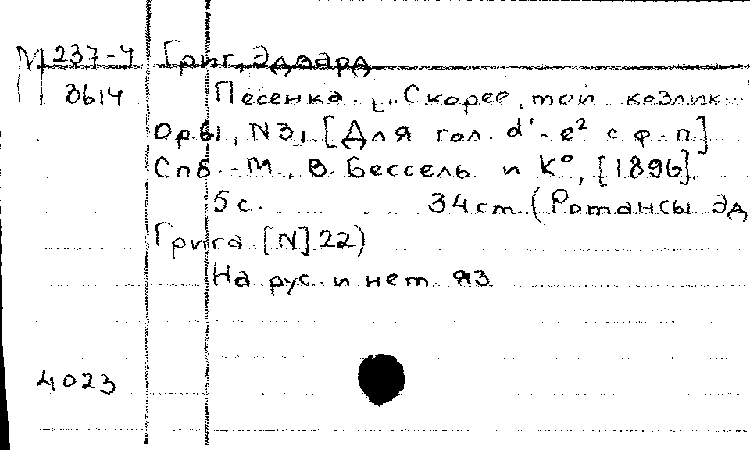 М 237-4 Григ, Эдвард
3614 Песенка. [„Скорее, мой козлик...
Ор. 61, N 3, [Для гол. d¹-e² с ф-п]
Спб.-М., В. Бессель и К°, [1896].
5 с. 34 см (Романсы Эд
Грига [N] 22)
На рус. и нем. яз
4023